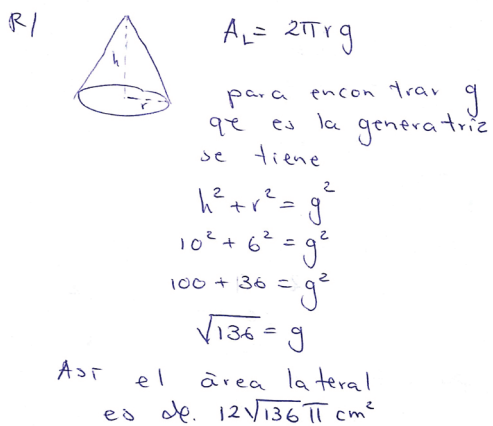 R/
A_L = 2πrg
h
r
para encontrar g
qe es la generatriz
se tiene
h² + r² = g²
10² + 6² = g²
100 + 36 = g²
√136 = g
Así el área lateral
es de. 12√136 π cm²